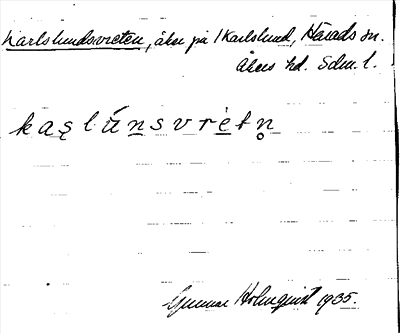 Karlslundsvreten, åker på 1 Karlslund, Härads sn.
Åkers hd. Sdm. l.
ka̱s̨lúṉsvrèt̯n̥
Gunnar Holmquist 1935.